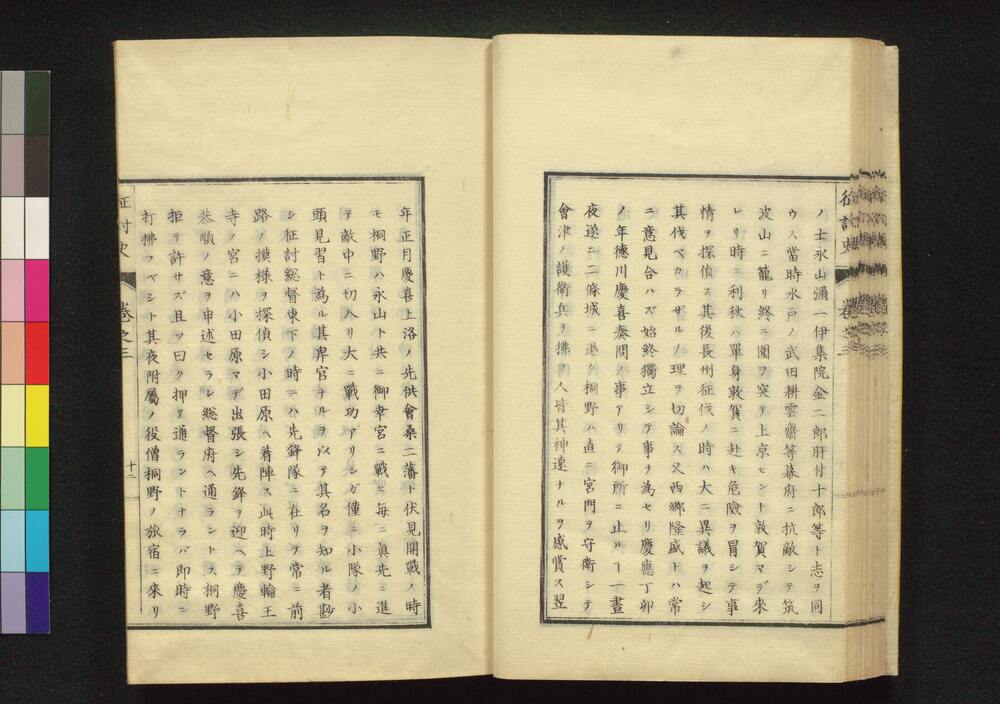 ノ士永山彌一伊集院金二郎肝付十郎等ト志ヲ同
ウス當時水戸ノ武田耕雲齋等幕府ニ抗敵シテ筑
波山ニ籠リ終ニ圍ヲ突テ上京セント敦賀マデ來
レリ時ニ利秋ハ單身敦賀ニ赴キ危險ヲ冒シテ事
情ヲ探偵ス其後長州征伐ノ時ハ大ニ異議ヲ起シ
其伐ベカラザルノ理ヲ切論ス又西郷隆盛トハ常
ニ意見合ハズ始終獨立シテ事ヲ為セリ慶應丁卯
ノ年德川慶喜奏問ノ事アリテ御所ニ止ルヿ一晝
夜遂ニ二條城ニ退ク桐野ハ直ニ宮門ヲ守衛シテ
會津ノ護衛兵ヲ拂フ人皆其神速ナルヲ感賞ス翌
年正月慶喜上洛ノ先供會桑二藩ト伏見開戰ノ時
モ桐野ハ永山ト共ニ御幸宮ニ戰ヒ毎ニ真先ニ進
テ敵中ニ切入リ大ニ戰功アリシガ僅ニ小隊ノ小
頭見習ト為ル其卑官ナルヲ以テ其名ヲ知ル者尠
シ征討総督東下ノ時ニハ先鋒隊ニ在リテ常ニ前
路ノ摸様ヲ探偵シ小田原ヘ着陣ス此時上野輪王
寺ノ宮ニハ小田原マデ出張シ先鋒ヲ迎ヘテ慶喜
恭順ノ意ヲ申述セラレ総督府ヘ通ラントス桐野
拒テ許サズ且ツ曰ク押テ通ラントナラバ即時ニ
打拂フベシト其夜附屬ノ役僧桐野ノ旅宿ニ來リ
征討史 卷之三 十二